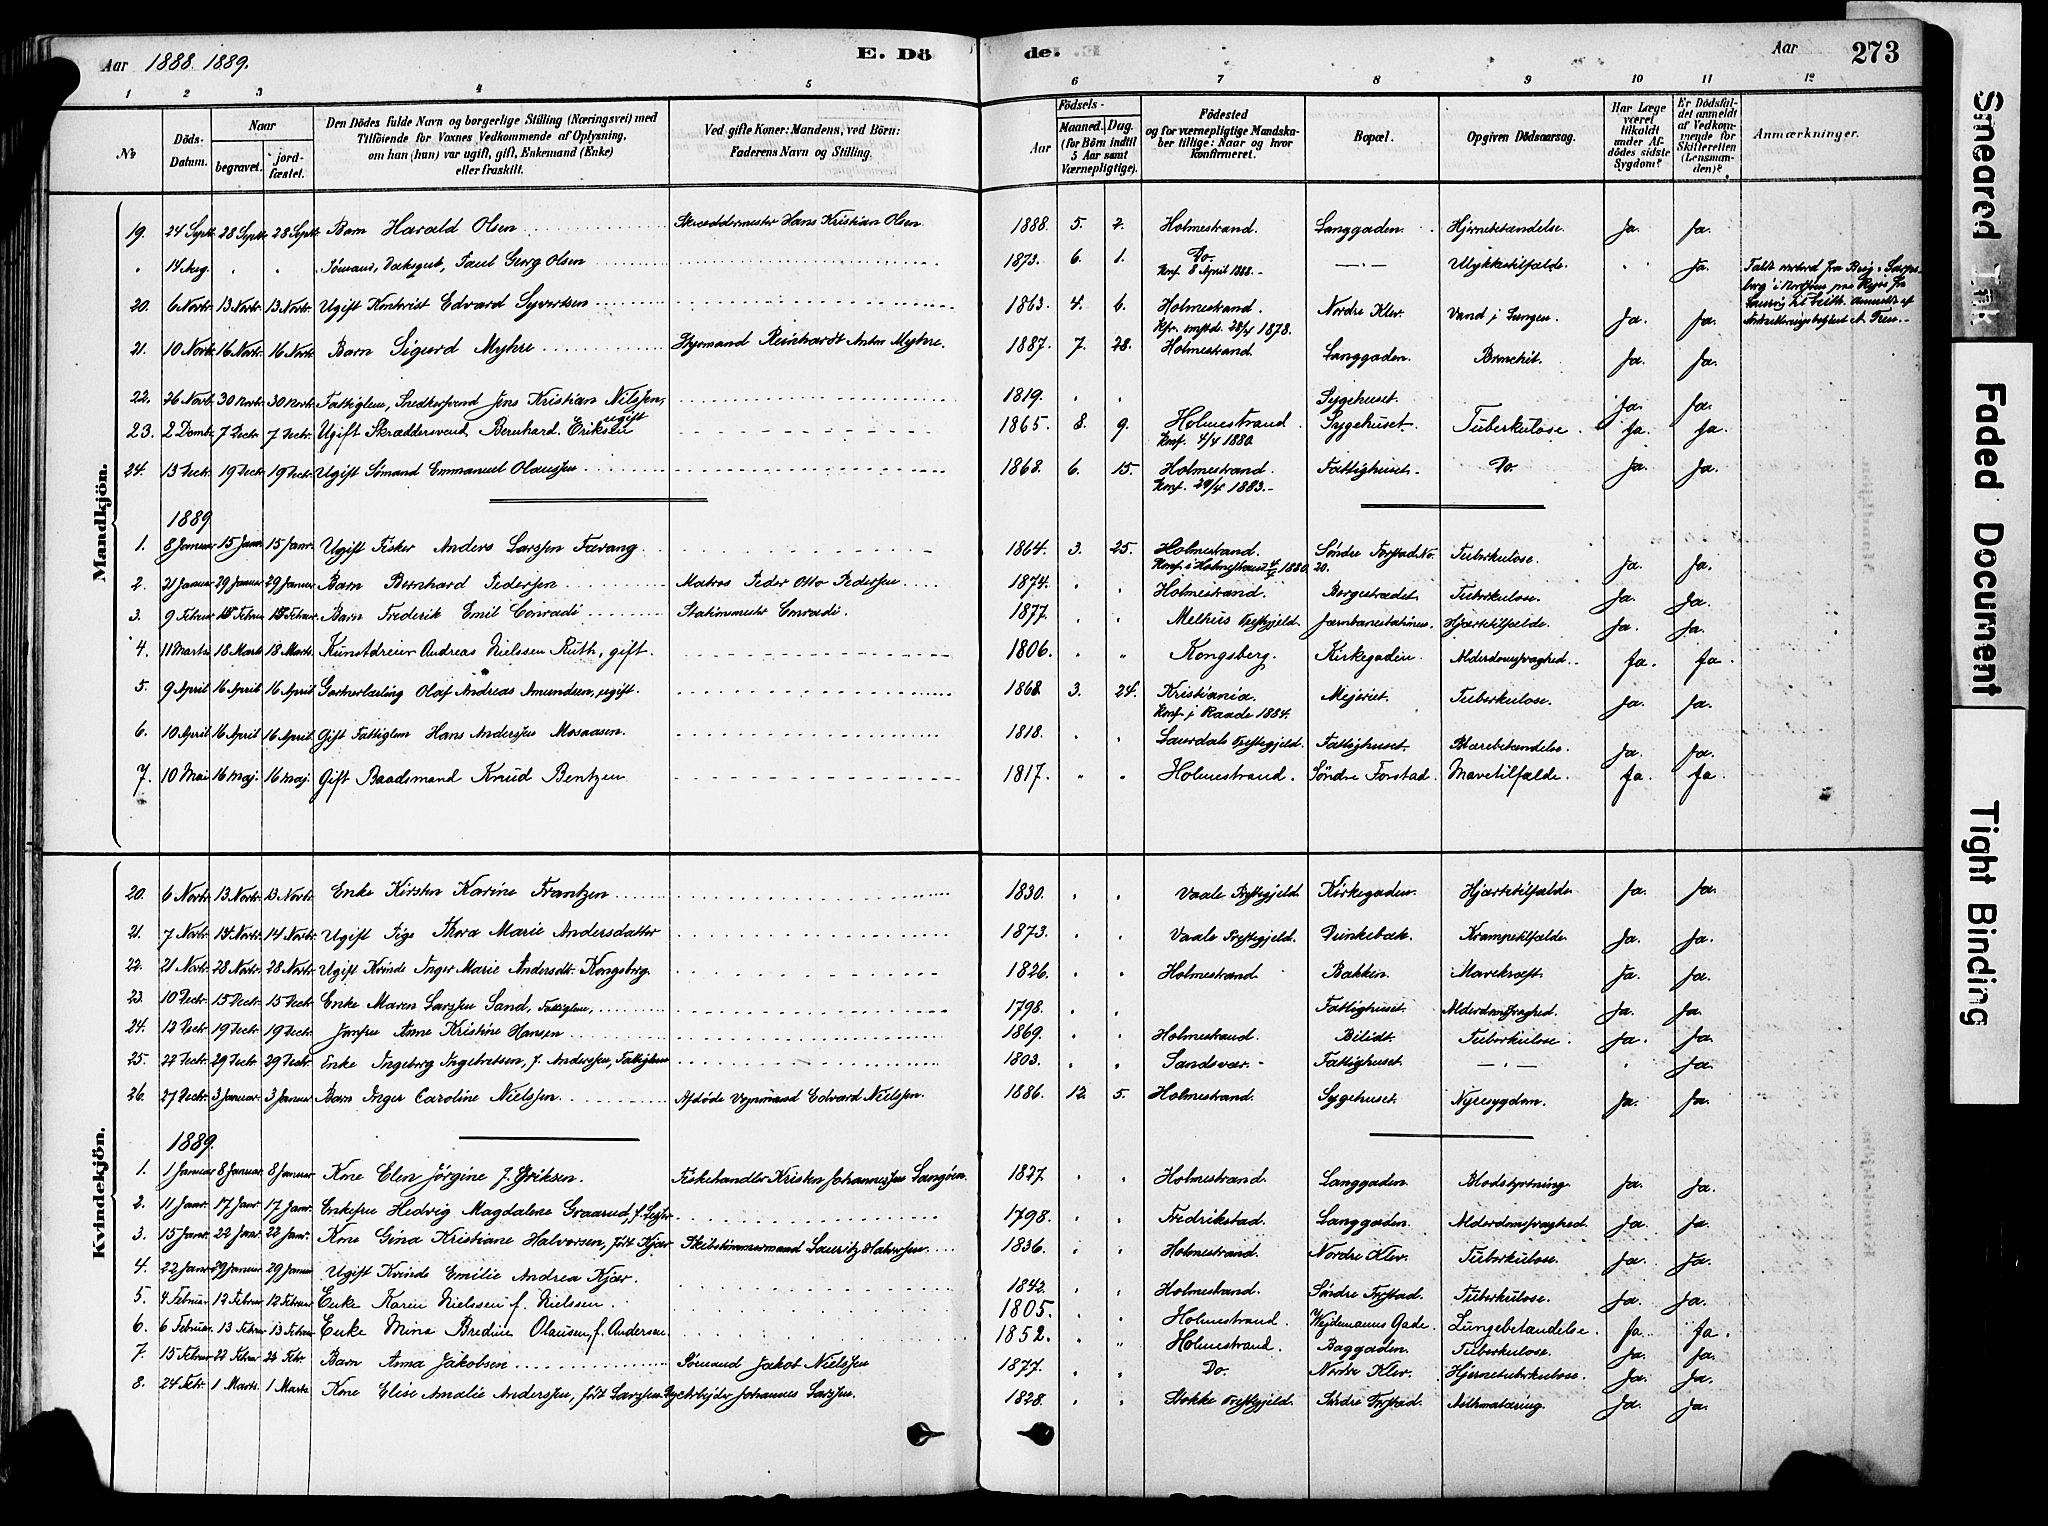 Aar 1888. 1889.
E. Dö
de.
Aar
273
1 2 3 4 5 6 7 8 9 10 11 12
No
Döds-Datum.
Naar
begravet.
jord-fæstet.
Den Dödes fulde Navn og borgerlige Stilling (Næringsvei) med
Tilföiende for Voxnes Vedkommende af Oplysning,
om han (hun) var ugift, gift, Enkemand (Enke)
eller fraskilt.
Ved gifte Koner: Mandens, ved Börn:
Faderens Navn og Stilling.
Födsels-
Aar
Maaned. Dag.
(for Börn indtil
5 Aar samt
Værnepligtige).
Födested
og for værnepligtige Mandska-
ber tillige: Naar og hvor
konfirmeret.
Bopæl.
Opgiven Dödsaarsag.
Har Læge
været
tilkaldt
under Af-
dödes sidste
Sygdom?
Er Dödsfal-
det anmeldt
af Vedkom-
mende for
Skifteretten
(Lensman-
den)?
Anmærkninger.
Mandkjön.
19. 24 Septr. 28 Septr. 28 Septr. Barn Harald Olsen Skræddermester Hans Kristian Olsen 1888. 5. 2. Holmestrand. Langgaden. Hjernebetændelse. Ja. Ja.
" 14 Aug. " " Sömand, Dæksgut, Paul Georg Olsen 1873. 6. 1. Do. —"— Ulykkestilfælde. " Ja.
Konf. 8 April 1888.
20. 6 Novbr. 13 Novbr. 13 Novbr. Ugift Kontorist Edvard Syvertsen 1863. 4. 6. Holmestrand. Nordre Klev. Vand i Lungen. Ja. Ja.
1878.
21. 10 Novbr. 16 Novbr. 16 Novbr. Barn Sigurd Myhre Styrmand Reinhardt Anton Myhre. 1887. 7. 28. Holmestrand. Langgaden. Bronchit. Ja. Ja.
22. 26 Novb. 30 Novbr. 30 Novbr. Fattiglem, Snedkersvend Jens Kristian Nilssen, ugift 1819. " " Sygehuset. Ja. Ja.
23. 2 Decmbr. 7 Decbr. 7 Decbr. Ugift Skræddersvend Bernhard Eriksen 1865. 8. 9. Holmestrand. Sygehuset. Tuberkulose. Ja. Ja.
Konf. 4/4 1880.
24. 13 Decbr. 19 Decbr. 19 Decbr. Ugift Sömand Emmanuel Olaussen 1868. 6. 15. Holmestrand. Fattighuset. Do Ja. Ja.
Konf. 29/4 1883.
1889
1. 8 Januar 15 Janr. 15 Janr. Ugift Fisker Anders Larssen Færang 1864. 3. 25. Holmestrand. Søndre Forstad No. 20. Tuberkulose. Ja. Ja.
Konf. i Holmestrand 1880.
2. 21 Januar 29 Januar 29 Januar Barn Bernhard Pedersen Matros Peder Otto Pedersen 1874. " " Holmestrand. Bergestrædet. Tuberkulose. Ja. Ja.
3. 9 Februar 15 Februar 15 Februar Barn Frederik Emil Conradi Stationsmester Conradi. 1877. " " Melhus Prestegjeld. Jernbanestationen. Hjertetilfælde. Ja. Ja.
4. 11 Marts 18 Marts 18 Marts. Kunstdreier Andreas Nielssen Ruth, gift. 1806. " " Kongsberg. Kirkegaden. Alderdomssvaghed. Ja. Ja.
5. 9 April 16 April 16 April Gartnerlærling Olaf Andreas Amundsen, ugift. 1868. 3. 24. Kristiania. Mejeriet. Tuberkulose. Ja. Ja.
Konf. i Raade 1884.
6. 10 April 16 April 16 April Gift Fattiglem Hans Anderssen Mosaasen. 1818. " " Laurdals Prestegjeld. Fattighuset. Blærebetændelse. Ja. Ja.
7. 10 Mai 16 Maj. 16 Maj. Gift Baadsmand Knud Bentzen 1817. " " Holmestrand. Søndre Forstad. Mavetilfælde. Ja. Ja.
Kvindekjön.
20. 6 Novbr. 13 Novbr. 13 Novbr. Enke Kirsten Karine Frantzen 1830. " " Vaale Prestegjeld. Kirkegaden. Hjertetilfælde. Ja. Ja.
21. 7 Novbr. 14 Novbr. 14 Novbr. Ugift Pige Thora Marie Andersdatter 1873. " " Vaale Prestegjeld. Krampetilfælde. Ja. Ja.
22. 21 Novbr. 28 Novbr. 28 Novbr. Ugift Kvinde Inger Marie Andersdtr. Kongsberg. 1826. " " Holmestrand Bakken. Mavekræft. Ja. Ja.
23. 10 Decbr. 15 Decbr. 15 Decbr. Enke Maren Larssen Sand, Fattiglem, 1798. " " Fattighuset. Alderdomssvaghed. Ja. Ja.
24. 12 Decbr. 19 Decbr. 19 Decbr. Jomfru Anne Kristine Hansen 1869. " " Holmestrand. Bilidt. Tuberkulose. Ja. Ja.
25. 22 Decbr. 29 Decbr. 29 Decbr. Enke Ingeborg Ingebretsen, f. Anderssen, Fattiglem 1803. " " Sandsvær. Fattighuset. —"— " Ja.
26. 27 Decbr. 3 Januar. 3 Januar. Barn Inger Caroline Nielssen Afdöde Vognmand Edvard Nielssen. 1886. 12. 5. Holmestrand. Sygehuset. Nyresygdom. Ja. Ja.
1889.
1. 1 Januar 8 Januar. 8 Januar. Kone Elen Jørgine f. Eriksen. Fiskehandler Kristen Johannessen Langøen. 1827. " " Holmestrand. Langgaden. Blodstyrtning. Ja. Ja.
2. 11 Janr. 17 Janr. 17 Janr. Enkefru Hedvig Magdalene Graarud, 1798. " " Fredrikstad. Langgaden. Alderdomssvaghed. Ja. Ja.
3. 15 Janr. 22 Janr. 22 Janr. Kone Gina Kristiane Halvorsen, født Kjær Skibstömmermand Lauritz Halvorsen. 1836. " " Holmestrand. Nordre Klev. Tuberkulose. Ja. Ja.
4. 22 Janr. 29 Januar 29 Januar Ugift Kvinde Emilie Andrea Kjær. 1842. " " Holmestrand. Søndre Forstad. Tuberkulose. Ja. Ja.
5. 4 Februar 12 Februar 12 Februar. Enke Karen Nielssen f. Nielssen. 1805. " " Holmestrand. Wejdemanns Gade. Lungebetændelse. Ja. Ja.
6. 6 Februar. 13 Februar 13 Februar Enke Mina Bredine Olausen, f. Andersen. 1852. " " Holmestrand. Baggaden. Tuberkulose. Ja. Ja.
7. 15 Februar 22 Februar 22 Febr. Barn Anna Jakobsen Sömand Jakob Nielssen 1877. " " Do. Nordre Klev. Hjernetuberkulose. Ja. Ja.
8. 24 Febr. 1 Marts. 1 Marts. Kone Elise Amalie Anderssen, født Larssen Johannes Larssen. 1828. " " Stokke Prestegjeld. Søndre Forstad. Ja. Ja.
Smeared Ink
Faded Document
Tight Binding